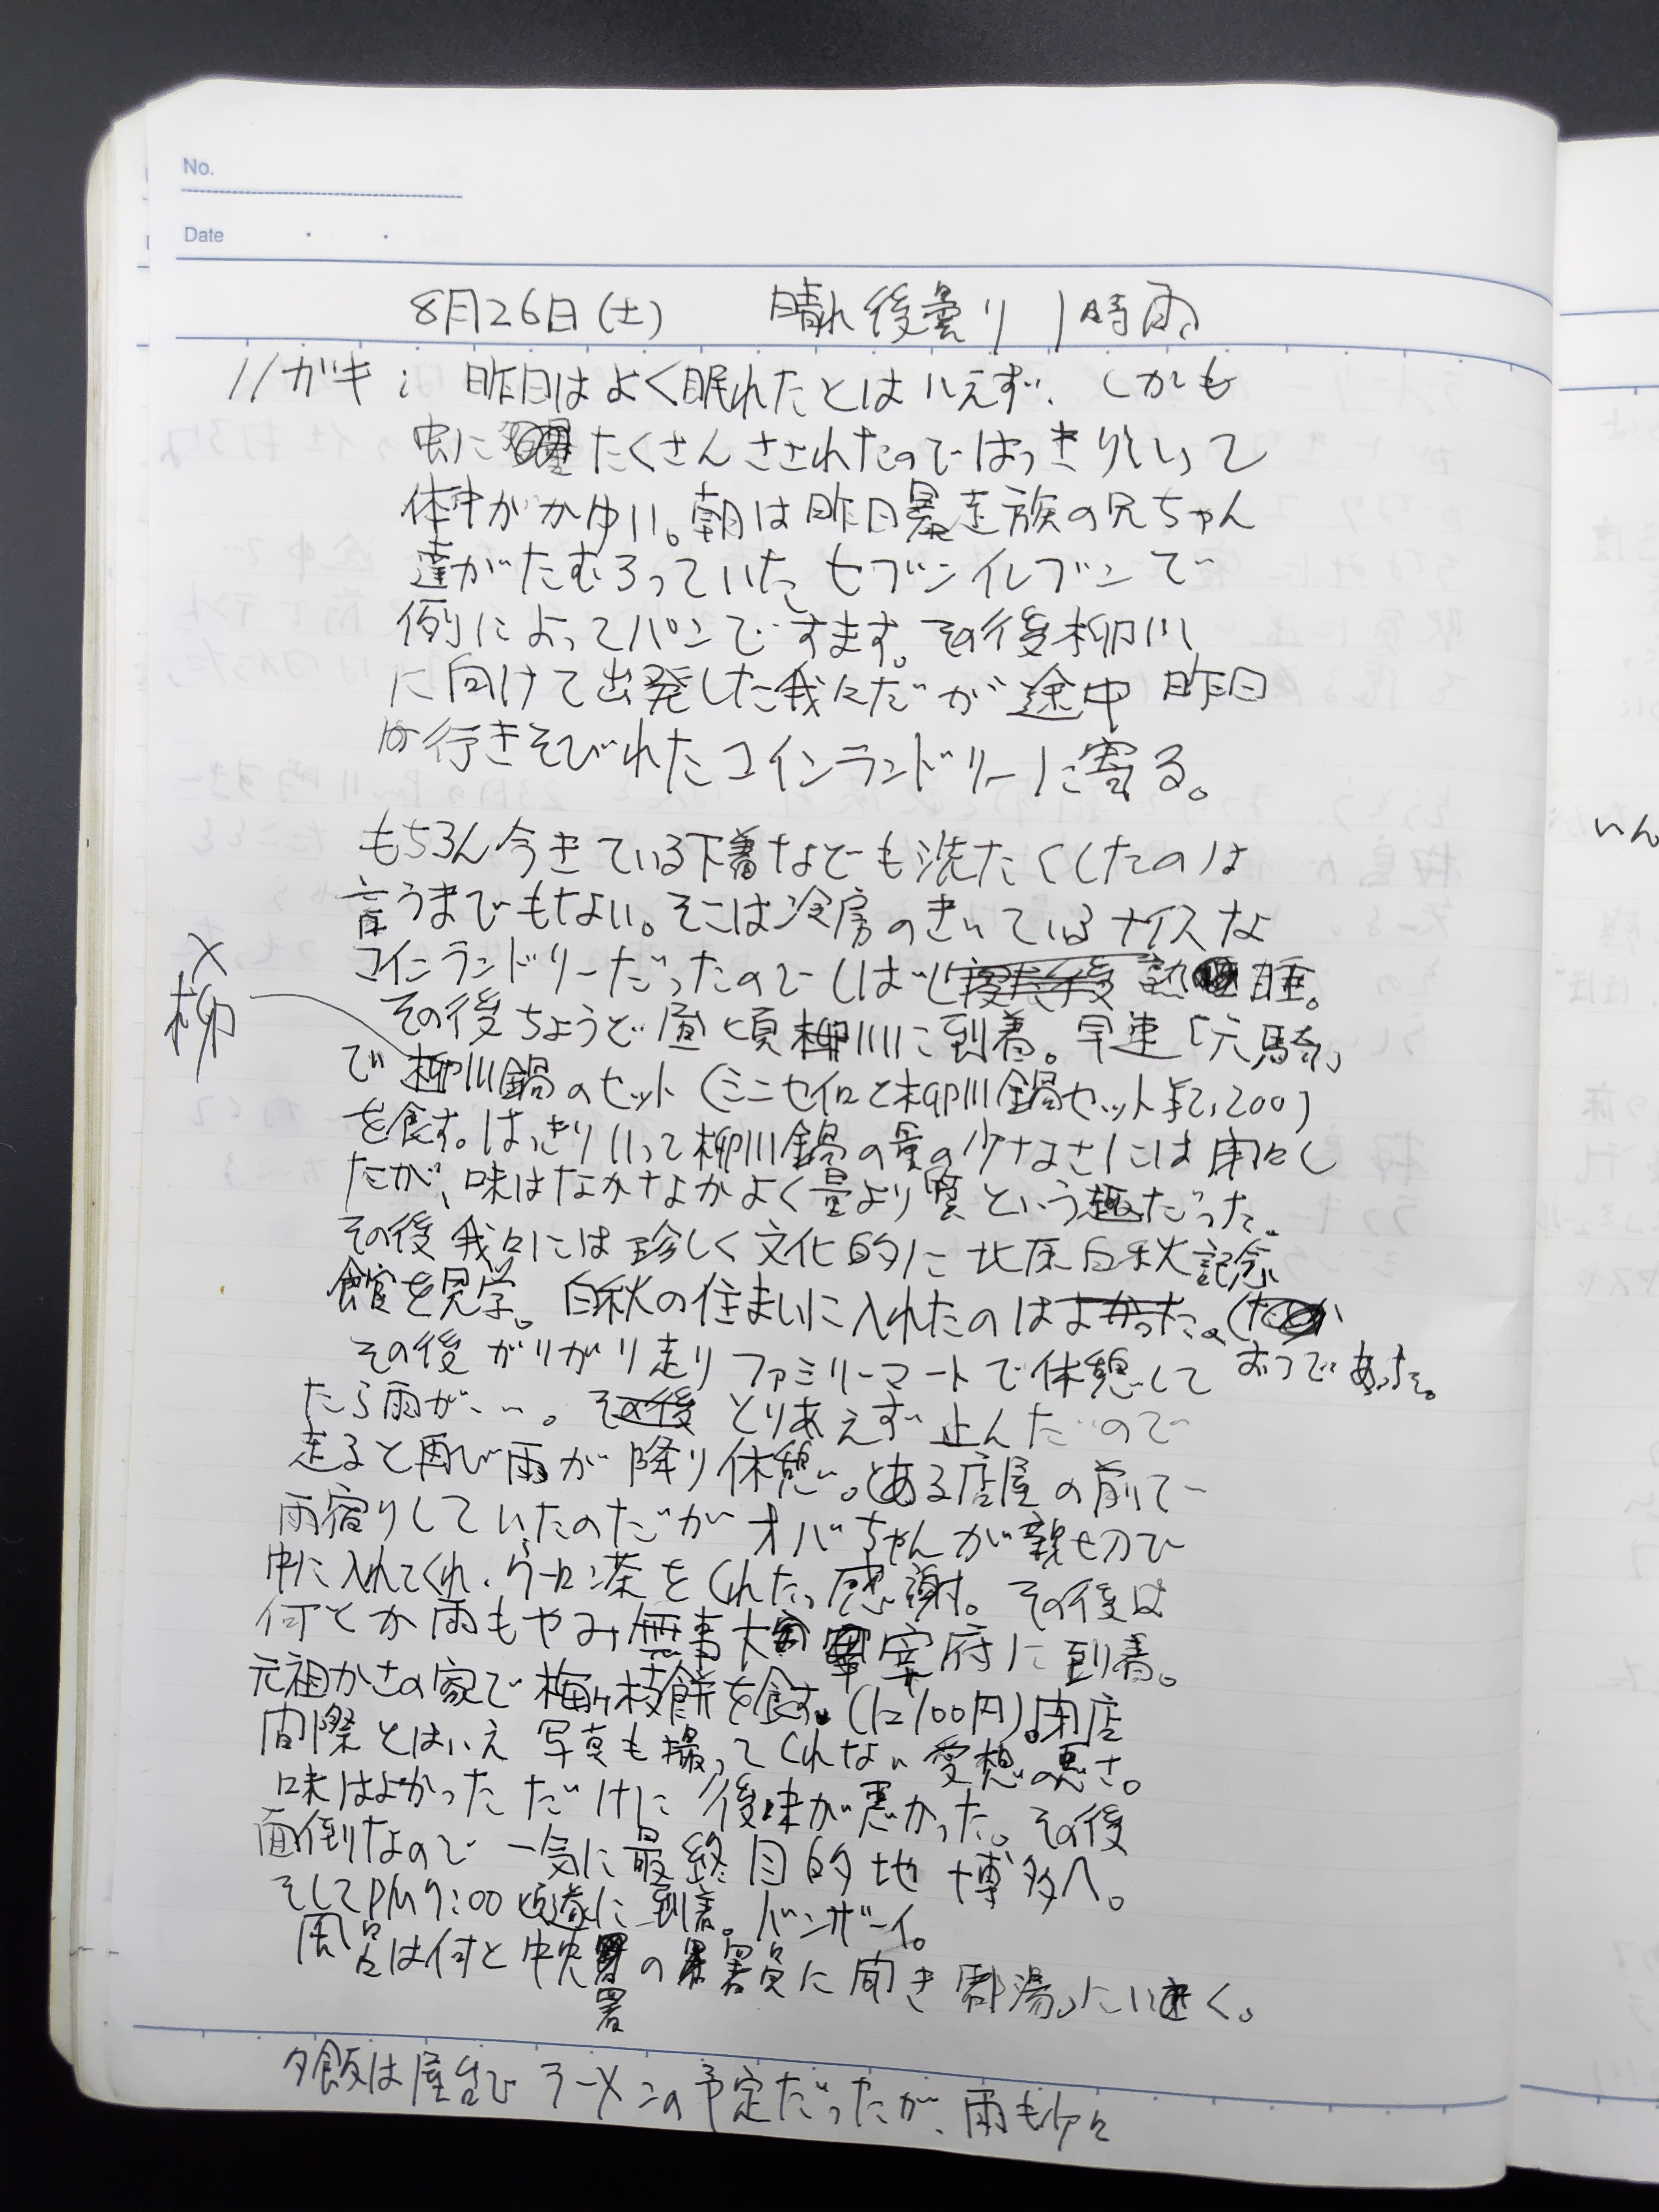 No.
Date
8月26日(土) 晴れ後曇り 1時雨
ハガキ: 昨日はよく眠れたとはいえず、しかも
虫に たくさんさされたのではっきりいって
体中がかゆい。朝は昨日暴走族の兄ちゃん
達がたむろっていたセブンイレブンで
例によってパンですます。その後柳川
に向けて出発した我々だが途中昨日
行きそびれたコインランドリーに寄る。
もちろん今きている下着なども洗たくしたのは
言うまでもない。そこは冷房のきいているナイスな
コインランドリーだったのでしばし 熟睡。
×
柳
その後ちょうど昼頃柳川に到着。早速「元
で柳川鍋のセット(ミニセイロと柳川鍋セット¥2,200)
を食す。はっきりいって柳川鍋の量の少なさには
たが、味はなかなかよく量より質という趣だった。
その後我々には珍しく文化的に北原白秋記念
館を見学。白秋の住まいに入れたのはよかった。
その後ガリガリ走りファミリーマートで休憩して
たら雨が…。その後とりあえず止んだので
走ると再び雨が降り休憩。とある店屋の前で
雨宿りしていたのだがオバちゃんが親切で
中に入れてくれ、ウーロン茶をくれた。感謝。その後は
何とか雨もやみ無事大宰府に到着。
元祖かさの家で梅ヶ枝餅を食す。(1コ100円)。閉店
間際とはいえ写真も撮ってくれない愛想の悪さ。
味はよかっただけに後味が悪かった。その後
面倒なので一気に最終目的地博多へ。
そしてPM7:00頃遂に到着。バンザーイ。
風呂は何と中央署の署員に聞き
署
夕飯は屋台でラーメンの予定だったが、雨も少々
いん